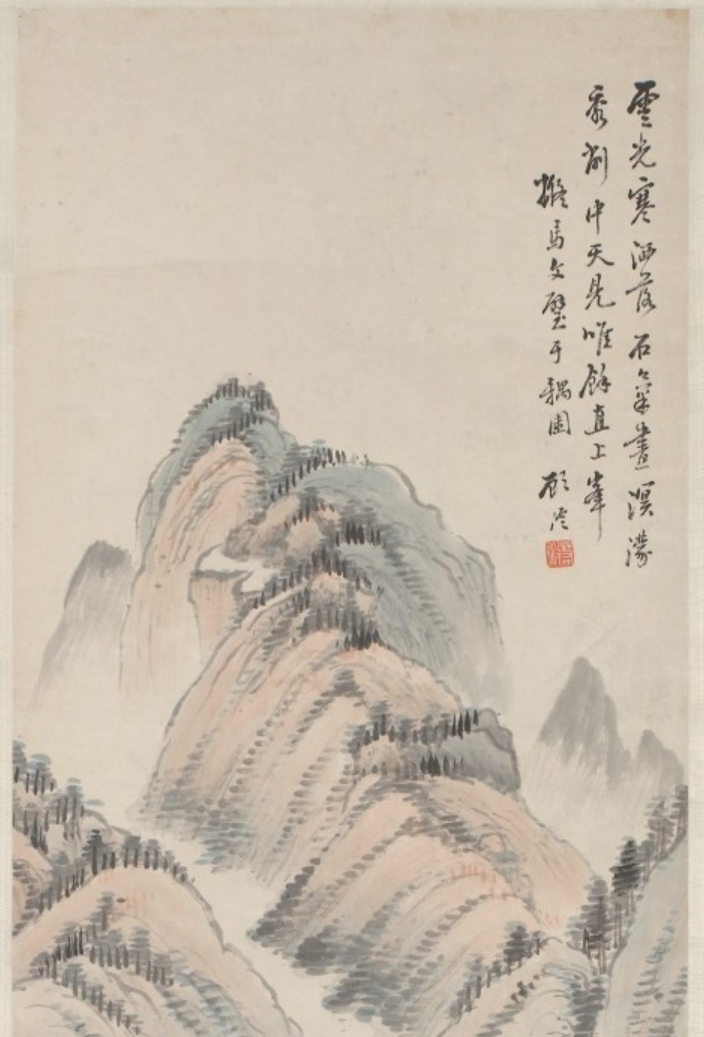 雲光寒洒落石氣晝溟濛
秀削中天見唯餘直上峯
擬馬文璧于耦園 顧沄